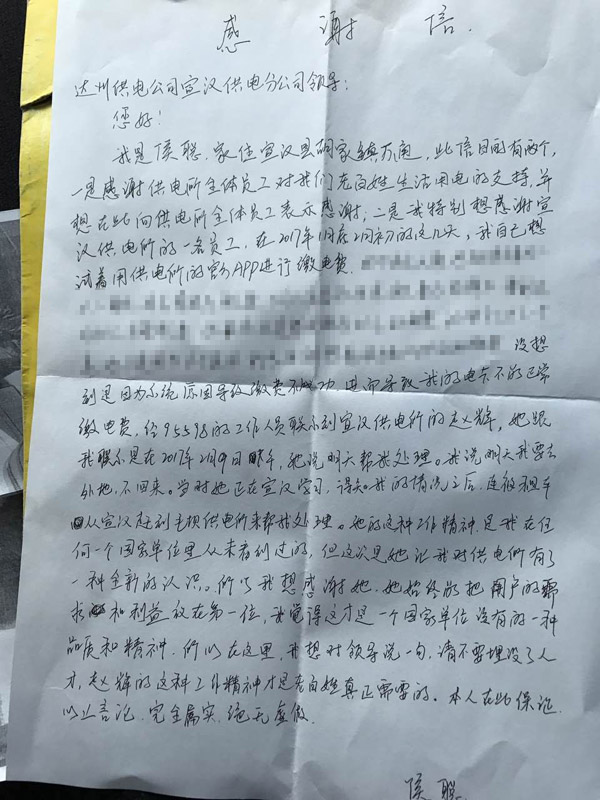 感谢信.
达州供电公司宣汉供电分公司领导:
您好!
我是侯聪,家住宣汉县胡家镇,此信目的有两个,
一是感谢供电所全体员工对我们老百姓生活用电的支持,并
想在此向供电所全体员工表示感谢;二是我特别想感谢宣
汉供电所的一名员工,在2017年1月底2月初的这几天,我自己想
试着用供电所的APP进行缴电费.
没想
到是因为系统原因导致缴费不成功,进而导致我的电卡不能正常
缴电费,给95598的工作人员联系到宣汉供电所的赵辉,她跟
我联系是在2017年2月9日,她说明天帮我处理。我说明天我要去
外地,不回来。当时她正在宣汉学习,得知我的情况之后,连夜
从宣汉赶到供电所来帮我处理。她的这种工作精神是我在任
何一个国家单位里从未看到过的,但这次是她让我对供电所有了
一种全新的认识。所以我想感谢她,她始终能把用户的需
求和利益放在第一位,我觉得这才是一个国家单位没有的一种
品质和精神.所以在这里,我想对领导说一句,请不要埋没了人
才,赵辉的这种工作精神才是老百姓真正需要的.本人在此保证
以上言论,完全属实,绝无虚假.
侯聪.